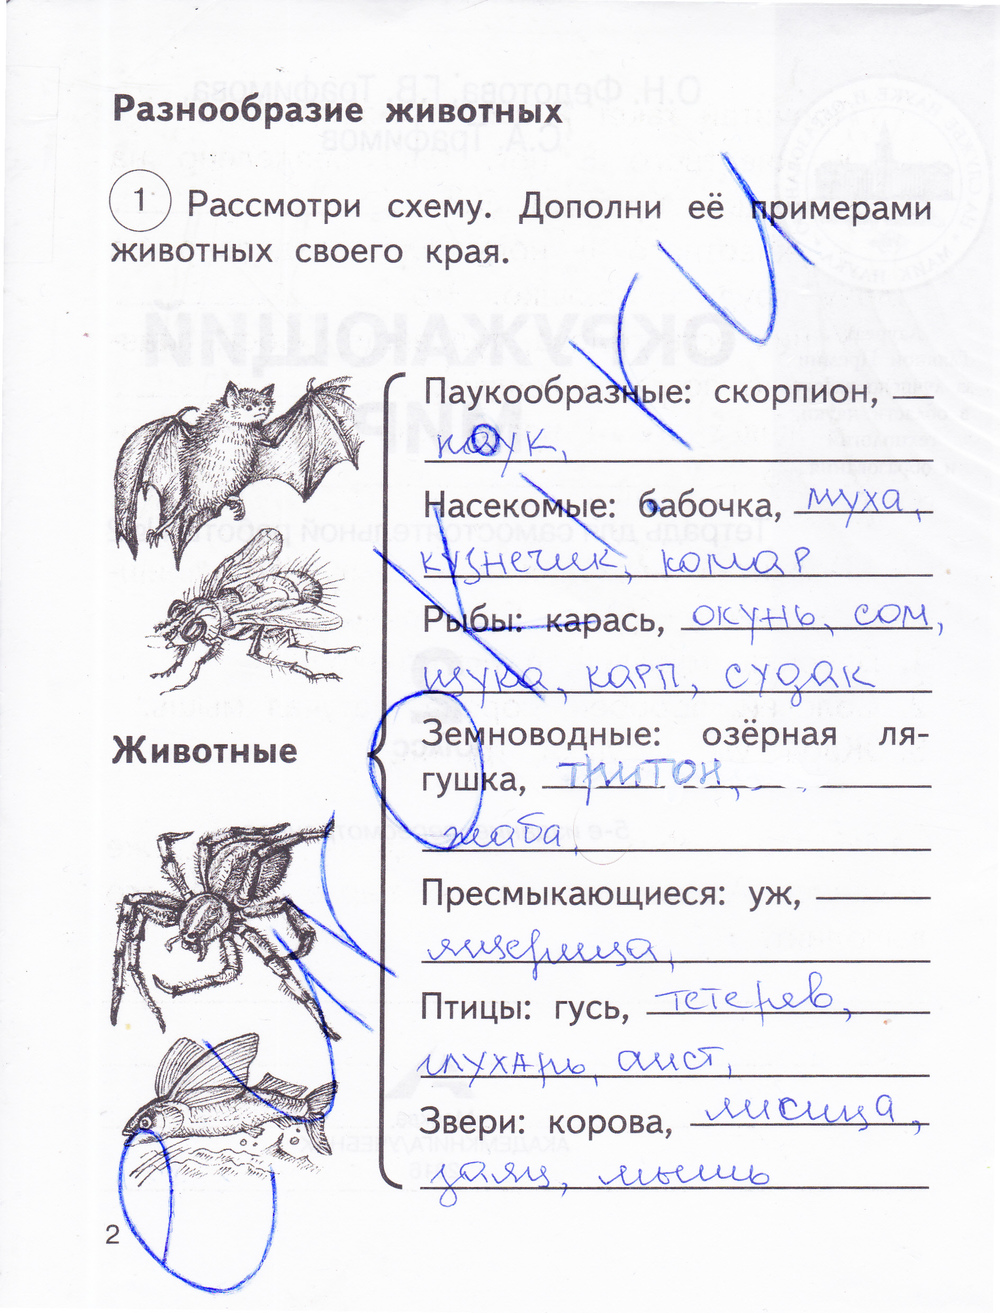 Разнообразие животных
1 Рассмотри схему. Дополни её примерами
животных своего края.
Паукообразные: скорпион,
паук,
Насекомые: бабочка, муха,
кузнечик, комар
Рыбы: карась, окунь, сом,
щука, карп, судак
Земноводные: озёрная ля-
гушка, тритон,
жаба,
Животные
Пресмыкающиеся: уж,
ящерица,
Птицы: гусь, тетерев,
глухарь, аист,
Звери: корова, лисица,
заяц, мышь
2